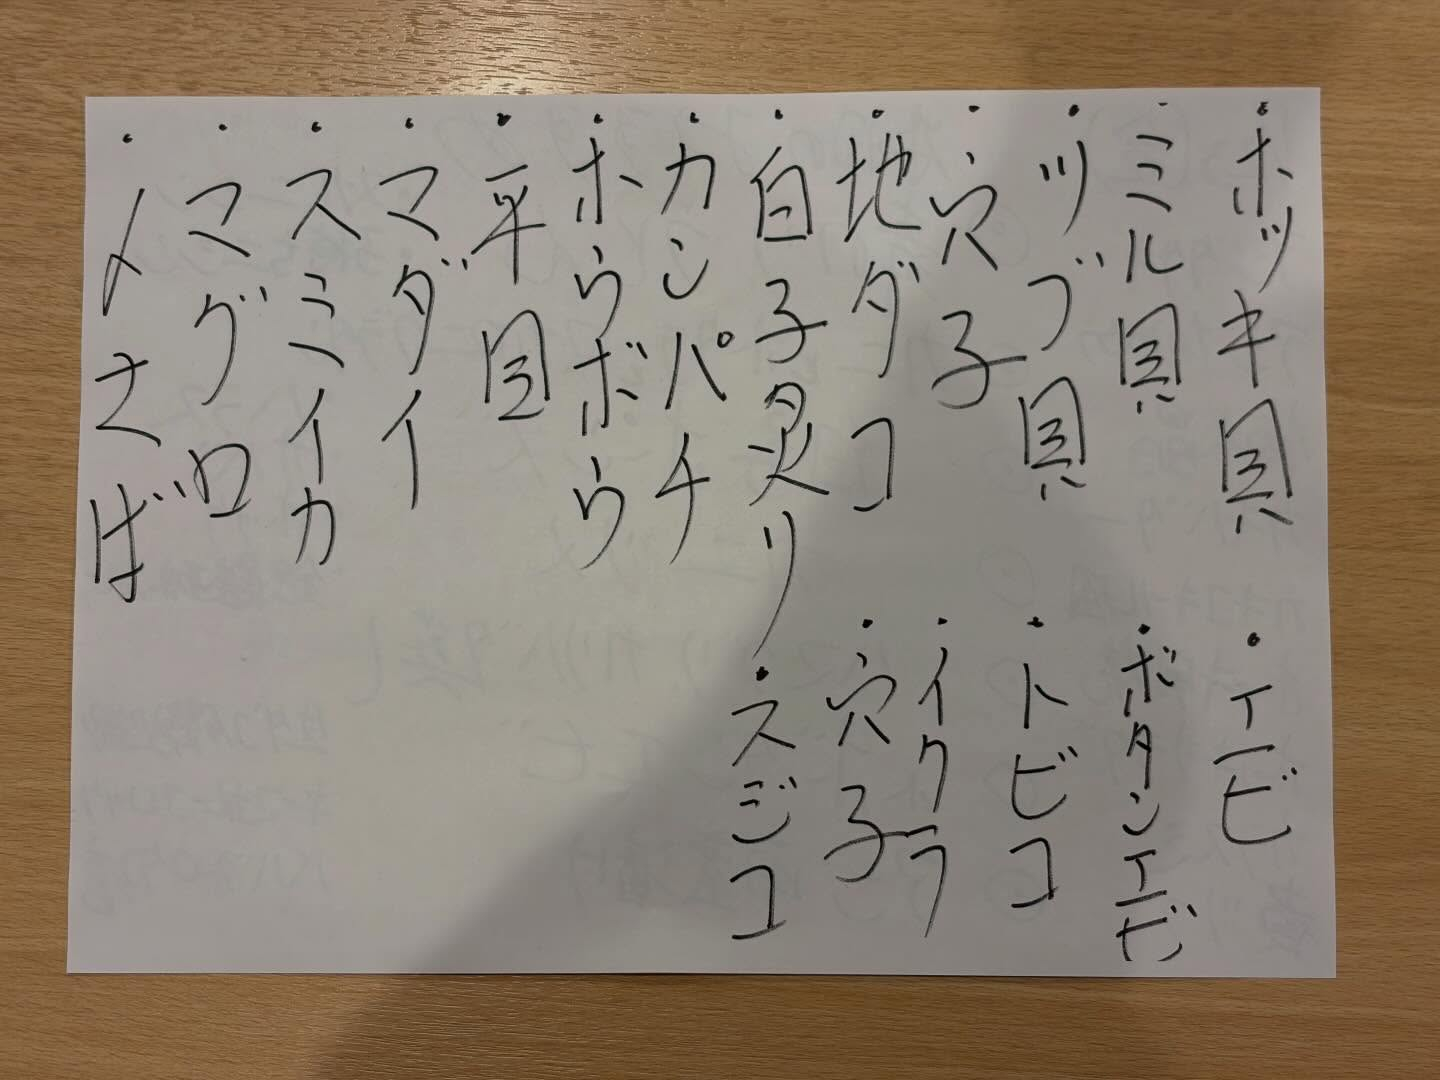 ・ホッキ貝
・ミル貝
・ツブ貝
・穴子
・地ダコ
・白子炙り
・カンパチ
・ホウボウ
・平目
・マダイ
・スミイカ
・マグロ
・〆さば
・エビ
・ボタンエビ
・トビコ
・イクラ
・穴子
・スジコ